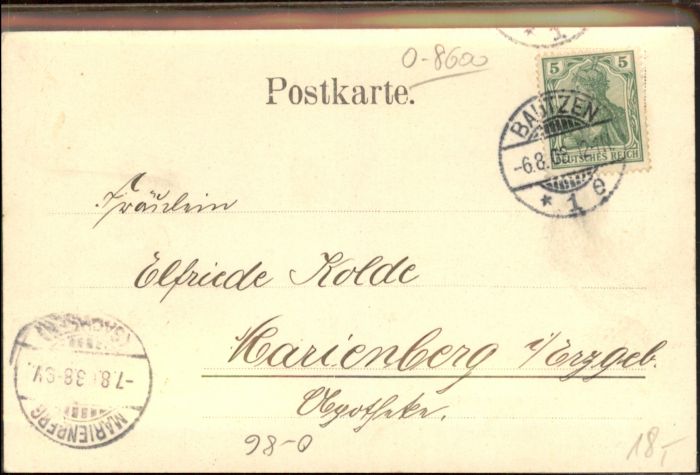 * 1
0-8600
Postkarte.
5 5
DEUTSCHES REICH
BAUTZEN
-6.8.
* 1 e
Fräulein
Elfriede Kolde
Marienberg i/Erzgeb.
Apotheke.
(SACHSEN)
-7.8.
8-9V.
MARIENBERG
98-0
18,-